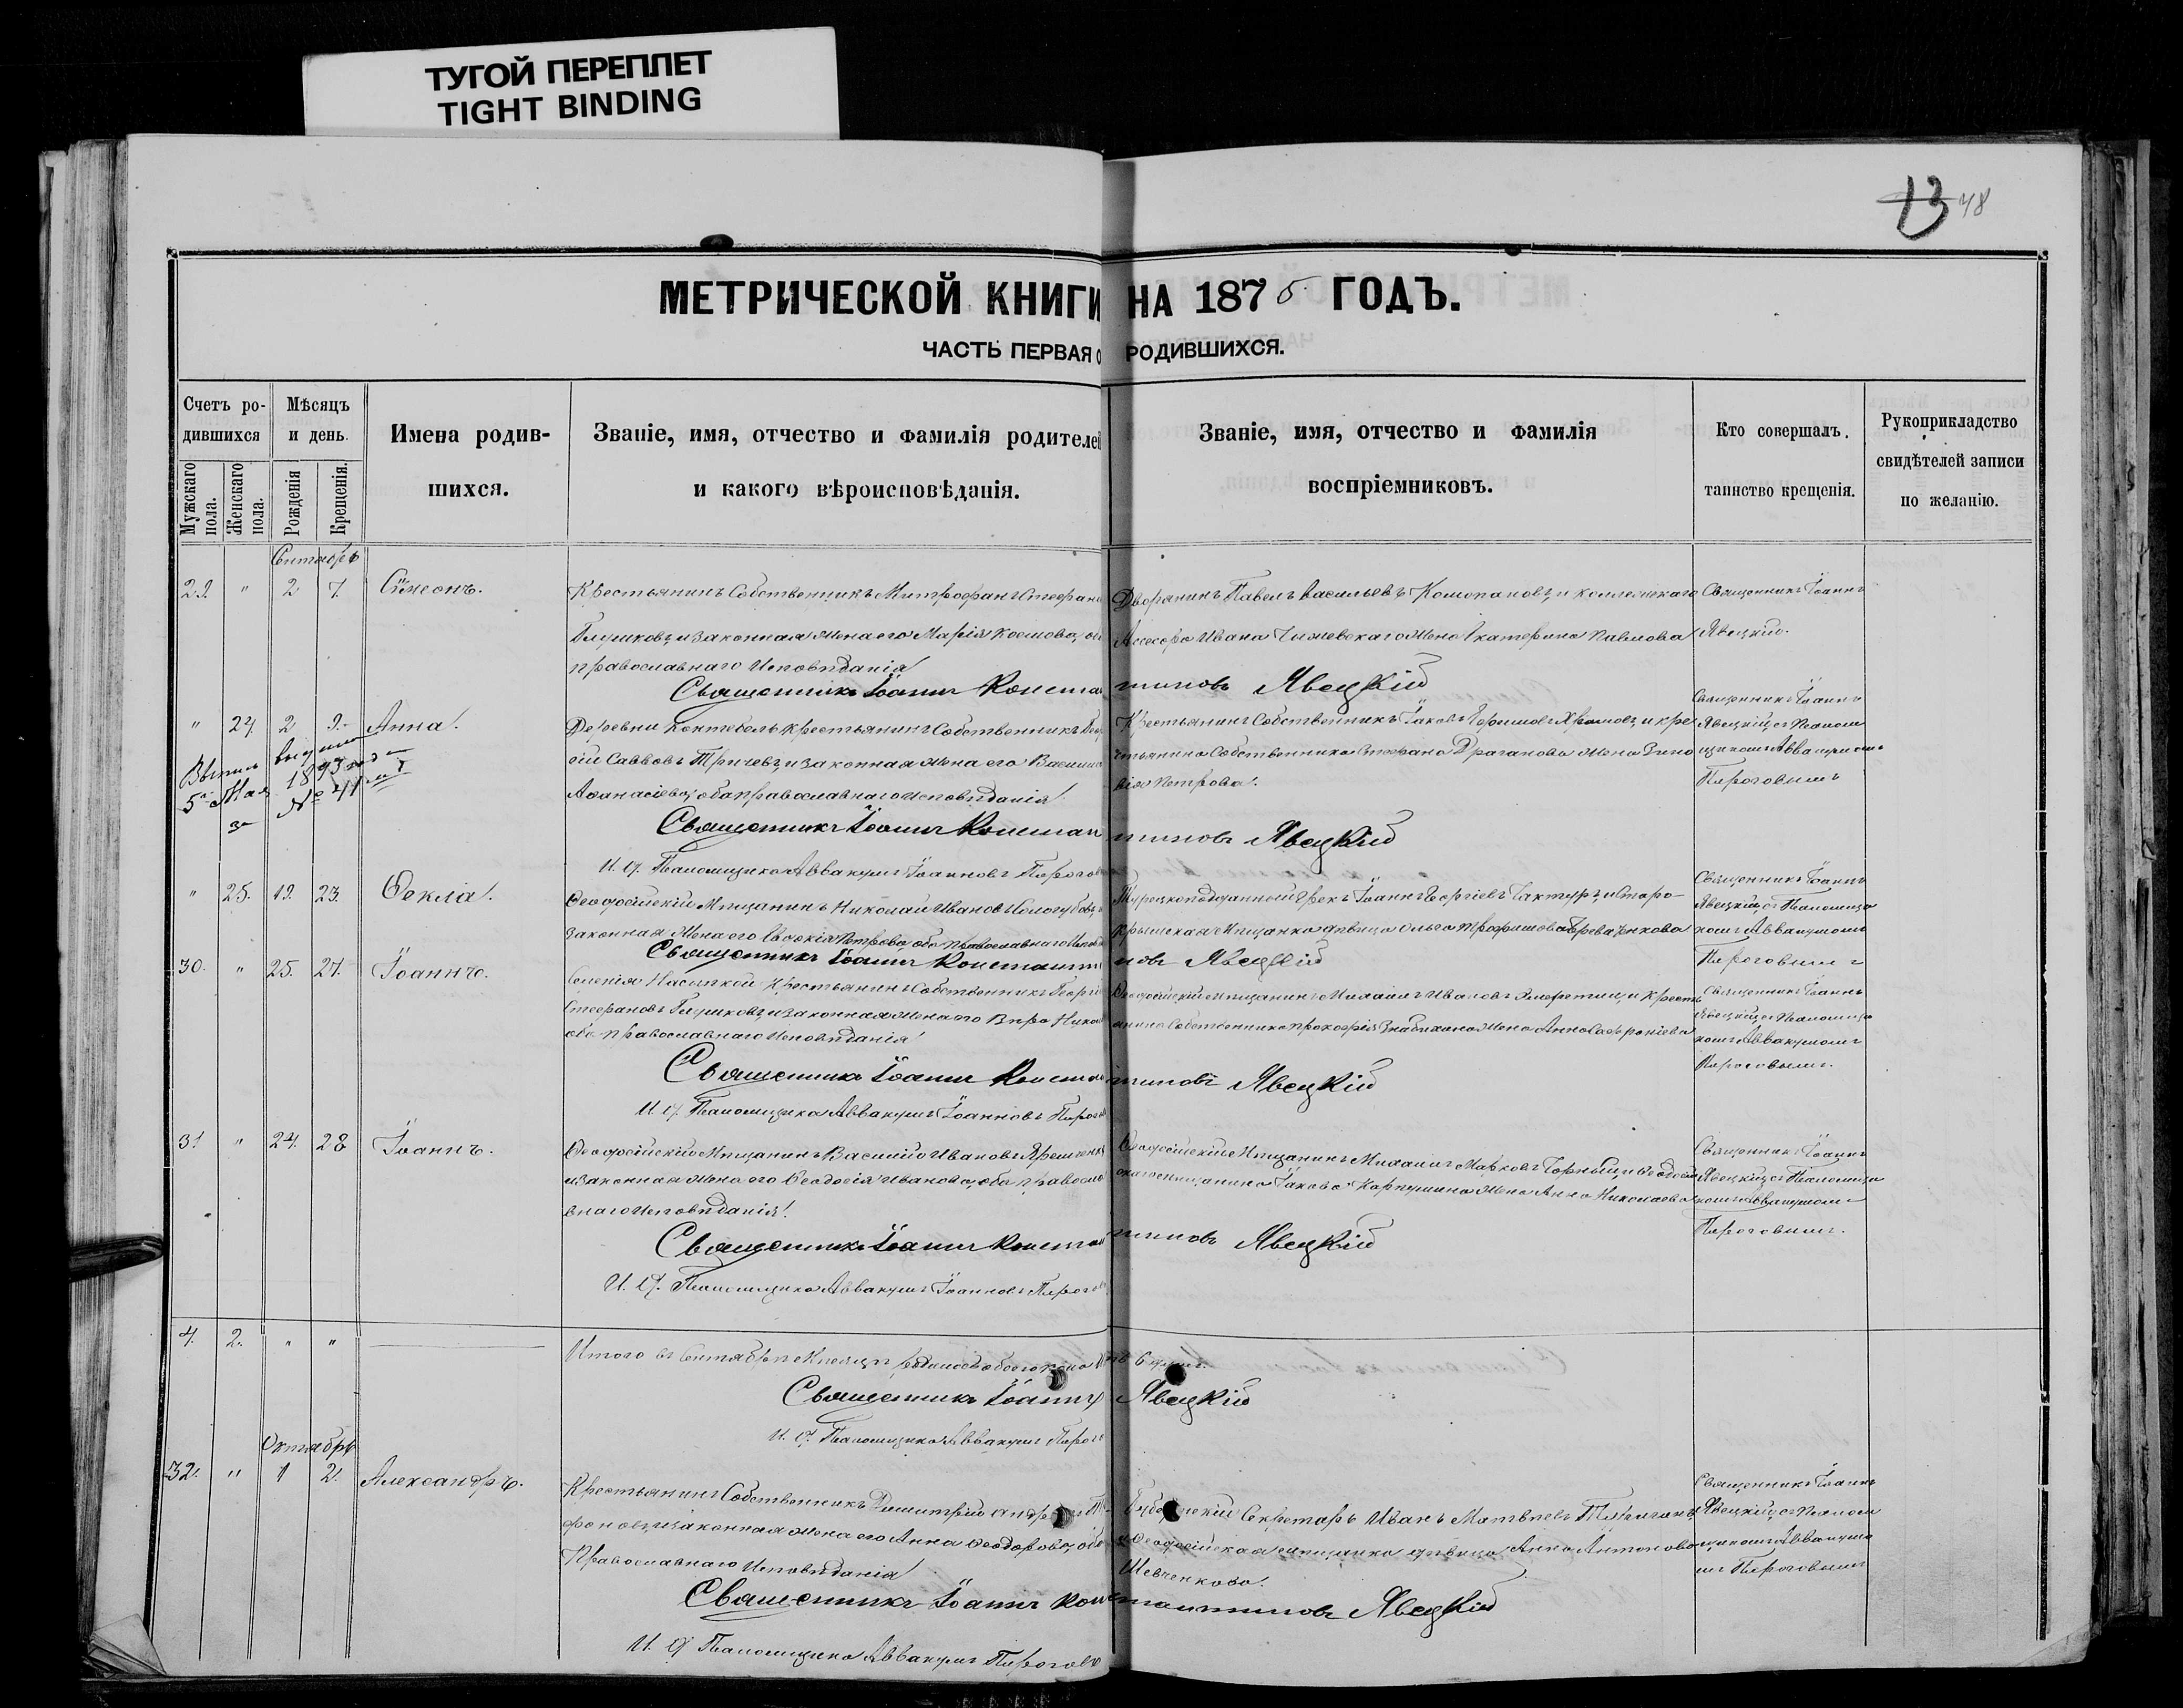 ТУГОЙ ПЕРЕПЛЕТ
TIGHT BINDING
13 48
МЕТРИЧЕСКОЙ КНИГИ НА 1875 ГОДЪ.
ЧАСТЬ ПЕРВАЯ О РОДИВШИХСЯ.
Счетъ ро-
дившихся
Мужскаго пола.
Женскаго пола.
Мѣсяцъ
и день.
Рожденія
Крещенія.
Имена родив-
шихся.
Званіе, имя, отчество и фамилія родителей
и какого вѣроисповѣданія.
Званіе, имя, отчество и фамилія
воспріемниковъ.
Кто совершалъ
таинство крещенія.
Рукоприкладство
свидѣтелей записи
по желанію.
Сентябрь
29. " 2 7. Симеонъ.
Крестьянинъ Собственникъ Митрофанъ Стефано
и законная жена его Марія
православнаго Исповѣданія
Дворянинъ Павелъ Васильевъ и коллежскаго
Ассесора Ивана жена Екатерина Павлова
Священникъ Іоаннъ
Явецкій.
Священникъ Іоаннъ Константиновъ Явецкій
" 24. 2 9. Анна.
Деревни Коктебель Крестьянинъ Собственникъ
Савовъ и законная жена его
Аѳанасіева, оба православнаго Исповѣданія
Крестьянинъ Собственникъ Іаковъ и кре
стьянина Собственника Стефана Драганова жена
Петрова.
Священникъ Іоаннъ
Явецкій съ Паломщикомъ Аввакумомъ
Пироговымъ
Выпись выдана
5го Мая 1893 года
за № 41
Священникъ Іоаннъ Константиновъ Явецкій
И. Д. Паломщика Аввакумъ Іоанновъ Пирогов
" 25. 19. 23. Ѳекла.
Ѳеодосійскій Мѣщанинъ Николай Ивановъ
законная жена его Петрова, оба Православнаго
Турецкоподданный Грекъ Іоаннъ Георгіевъ и Старо-
крымская Мѣщанка дѣвица Ольга
Священникъ Іоаннъ
Явецкій съ Паломщи
комъ Аввакумомъ
Пироговымъ
Священникъ Іоаннъ Константиновъ Явецкій
30. " 25. 27. Іоаннъ.
Селенія Насыпкой Крестьянинъ Собственникъ Георгій
Стефановъ и законная жена его Вѣра
оба православнаго Исповѣданія
Ѳеодосійскій мѣщанинъ Михаилъ Ивановъ и кресть
янина Собственника Прокофія жена Анна
Священникъ Іоаннъ
Явецкій съ Паломщи
комъ Аввакумомъ
Пироговымъ.
Священникъ Іоаннъ Константиновъ Явецкій
И. Д. Паломщика Аввакумъ Іоанновъ Пирого
31 " 24. 28 Іоаннъ.
Ѳеодосійскій Мѣщанинъ Василій Ивановъ
и законная жена его Ѳеодосія Иванова, оба православ
внаго Исповѣданія.
Ѳеодосійскій Мѣщанинъ Михаилъ Марковъ и Ѳеодосій
скаго мѣщанина Іакова жена Анна Николаева
Священникъ Іоаннъ
Явецкій съ Паломщи
комъ Аввакумомъ
Пироговымъ.
Священникъ Іоаннъ Константиновъ Явецкій
И. Д. Паломщика Аввакумъ Іоанновъ Пирого
4. 2. " "
Итого въ Сентябрѣ Мѣсяцѣ родилось обоего пола 6 душъ.
Священникъ Іоаннъ Явецкій
И. Д. Паломщика Аввакумъ Пирого
Октябрь
32. " 1 2. Александръ.
Крестьянинъ Собственникъ Димитрій
и законная жена его Анна Ѳеодорова, оба
Православнаго Исповѣданія
Губернскій Секретарь Иванъ Матвѣевъ
и Ѳеодосійская мѣщанка дѣвица Анна Антонова
Шевченкова.
Священникъ Іоаннъ
Явецкій съ Палом
щикомъ Аввакумо
мъ Пироговымъ
Священникъ Іоаннъ Константиновъ Явецкій
И. Д. Паломщика Аввакумъ Пирогов